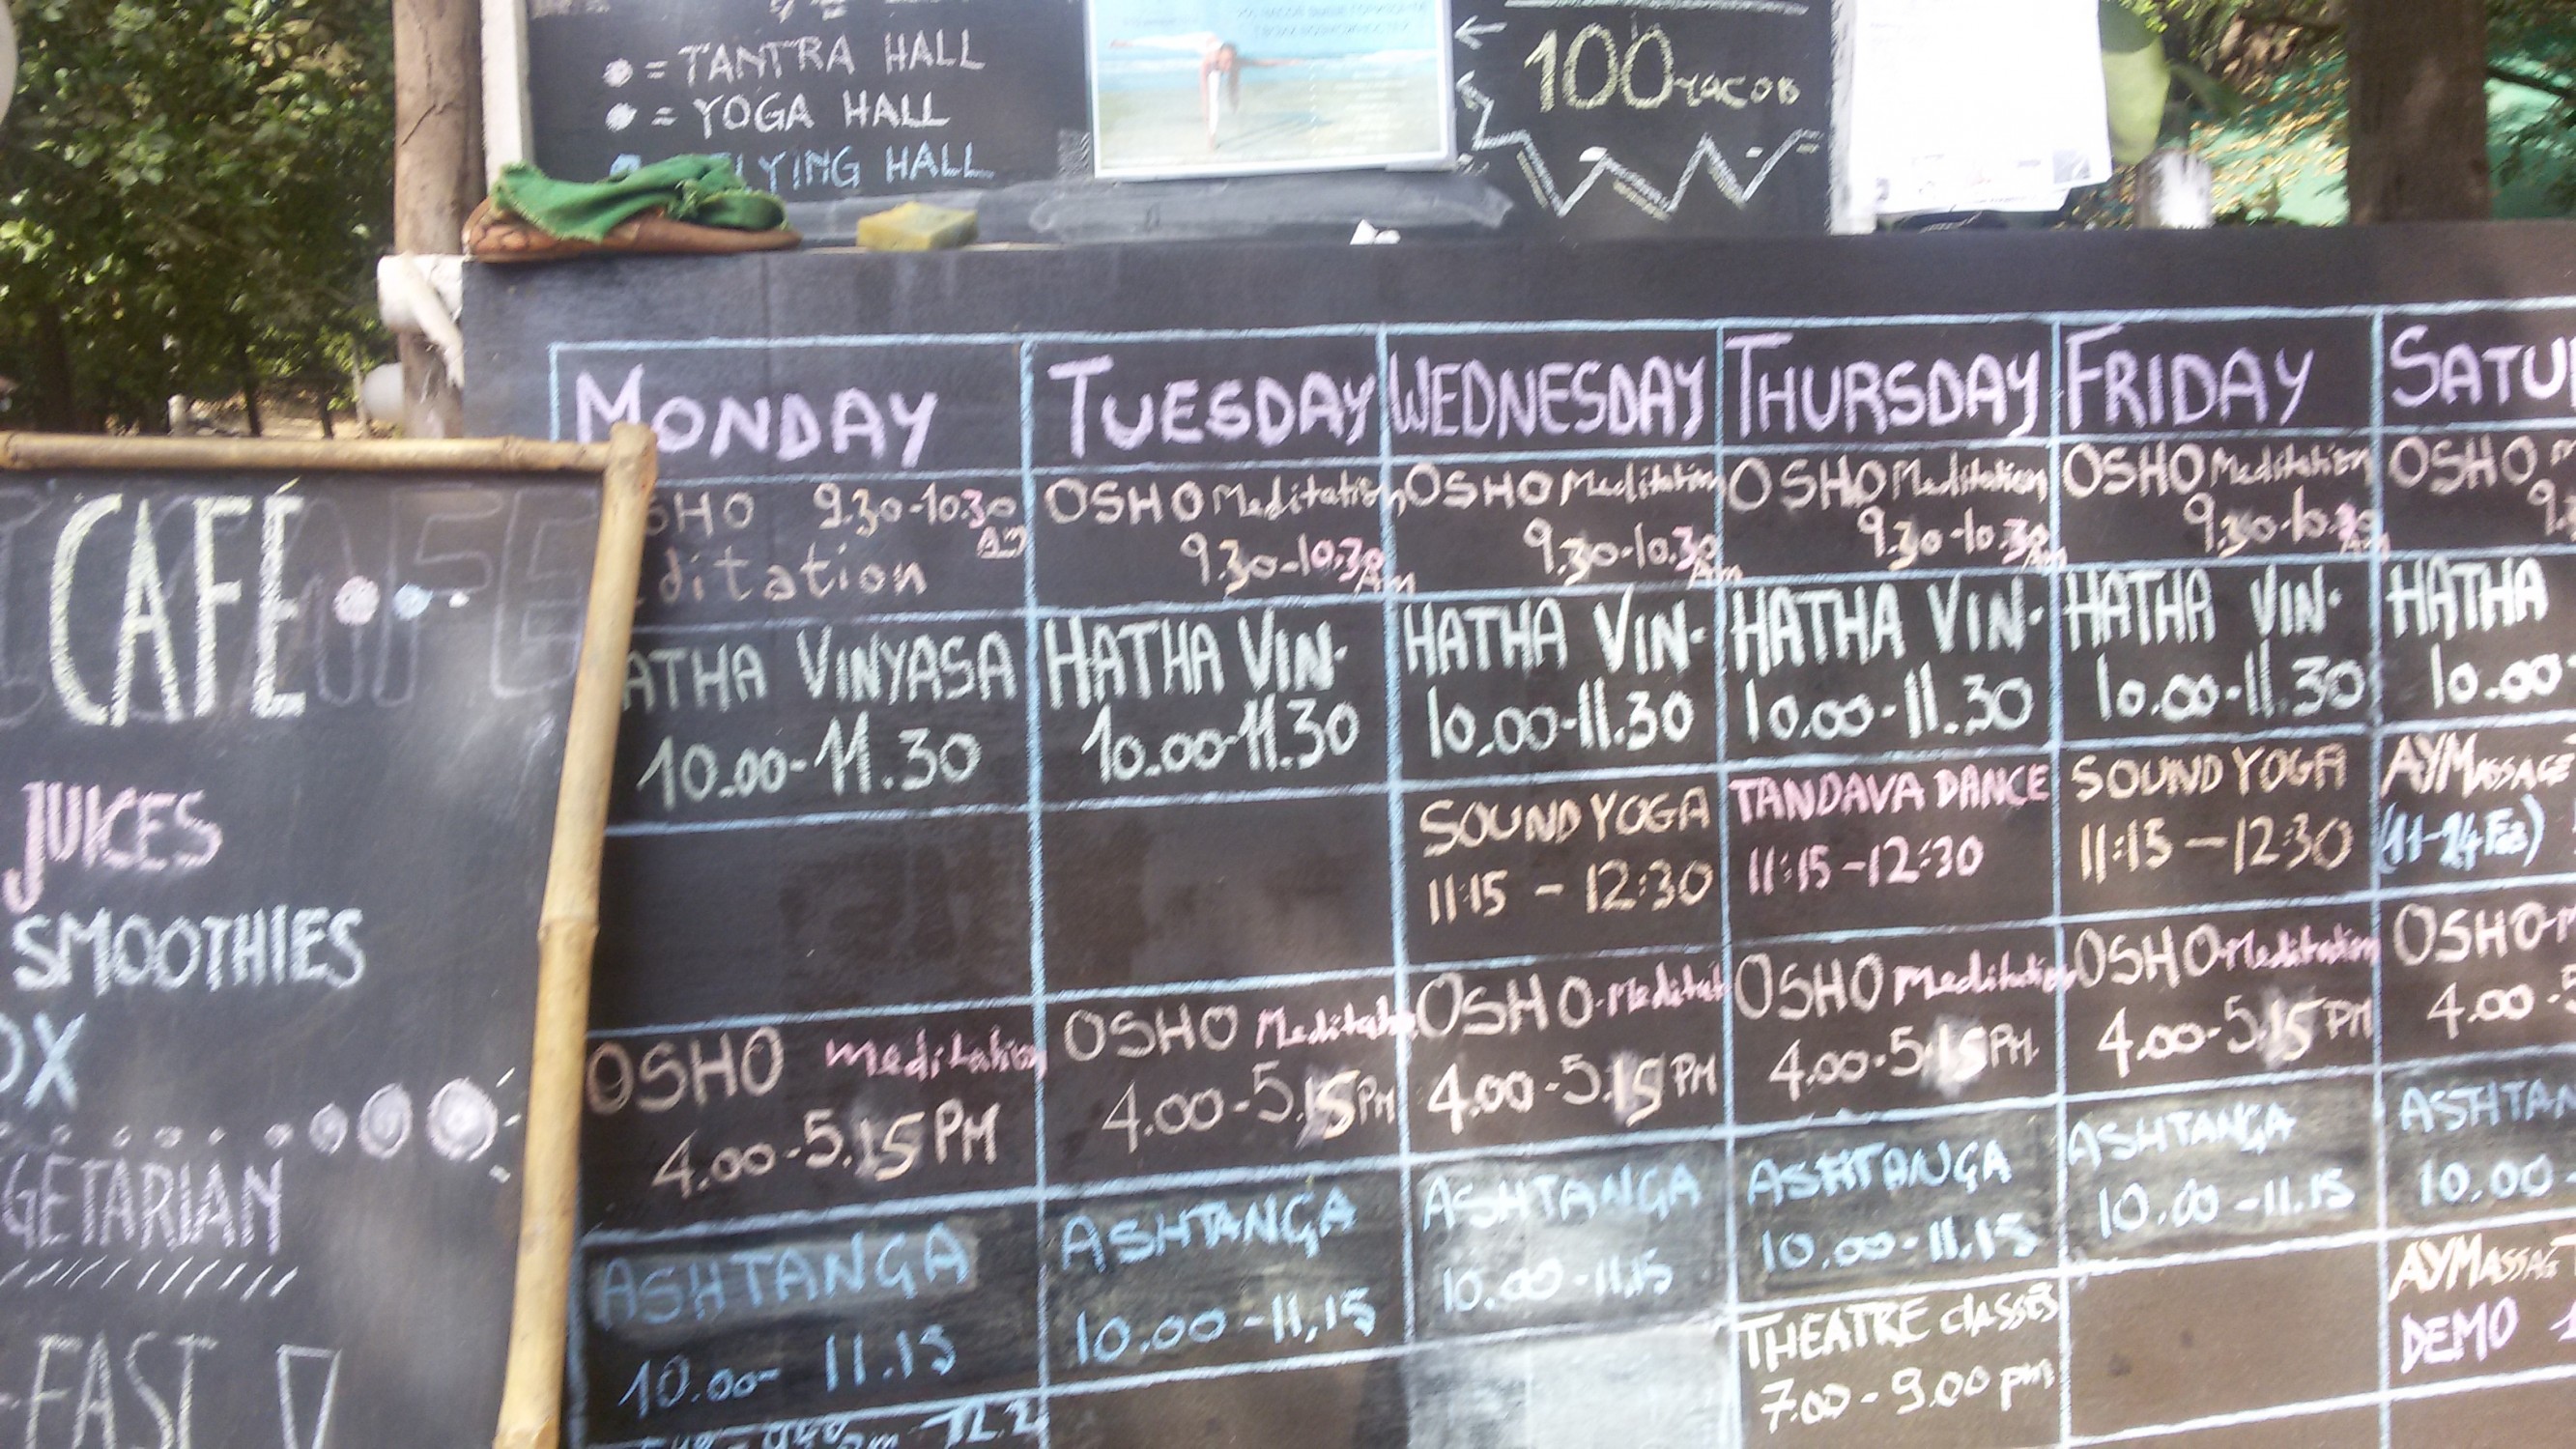 = TANTRA HALL
= YOGA HALL
LYING HALL
100 часов
MONDAY TUESDAY WEDNESDAY THURSDAY FRIDAY SATU
SHO 9.30-10.30 AM
ditation
OSHO Meditation
9.30-10.30 Am
OSHO Meditation
9.30-10.30 Am
OSHO Meditation
9.30-10.30 Am
OSHO Meditation
9.30-10.30 Am
OSHO M
9.
ATHA VINYASA
10.00-11.30
HATHA VIN.
10.00-11.30
HATHA VIN.
10.00-11.30
HATHA VIN.
10.00-11.30
HATHA VIN.
10.00-11.30
HATHA
10.00
SOUND YOGA
11:15 - 12:30
TANDAVA DANCE
11:15-12:30
SOUND YOGA
11:15 - 12:30
AYMASSAGE
(11-24 FEB)
OSHO meditation
4.00-5.15 PM
OSHO Meditatio
4.00-5.15 PM
OSHO-Meditat
4.00-5.15 PM
OSHO Meditation
4.00-5.15 PM.
OSHO-Meditation
4.00-5.15 PM
OSHO-M
4.00-5
ASHTANGA
10.00-11.15
ASHTANGA
10.00-11,15
ASHTANGA
10.00-11.15
ASHTANGA
10.00-11.15
ASHTANGA
10.00-11.15
ASHTAN
10.00-
THEATRE classes
7.00-9.00 pm
AYMASSAG
DEMO
CAFÉ
JUICES
SMOOTHIES
OX
GETARIAN
-FAST